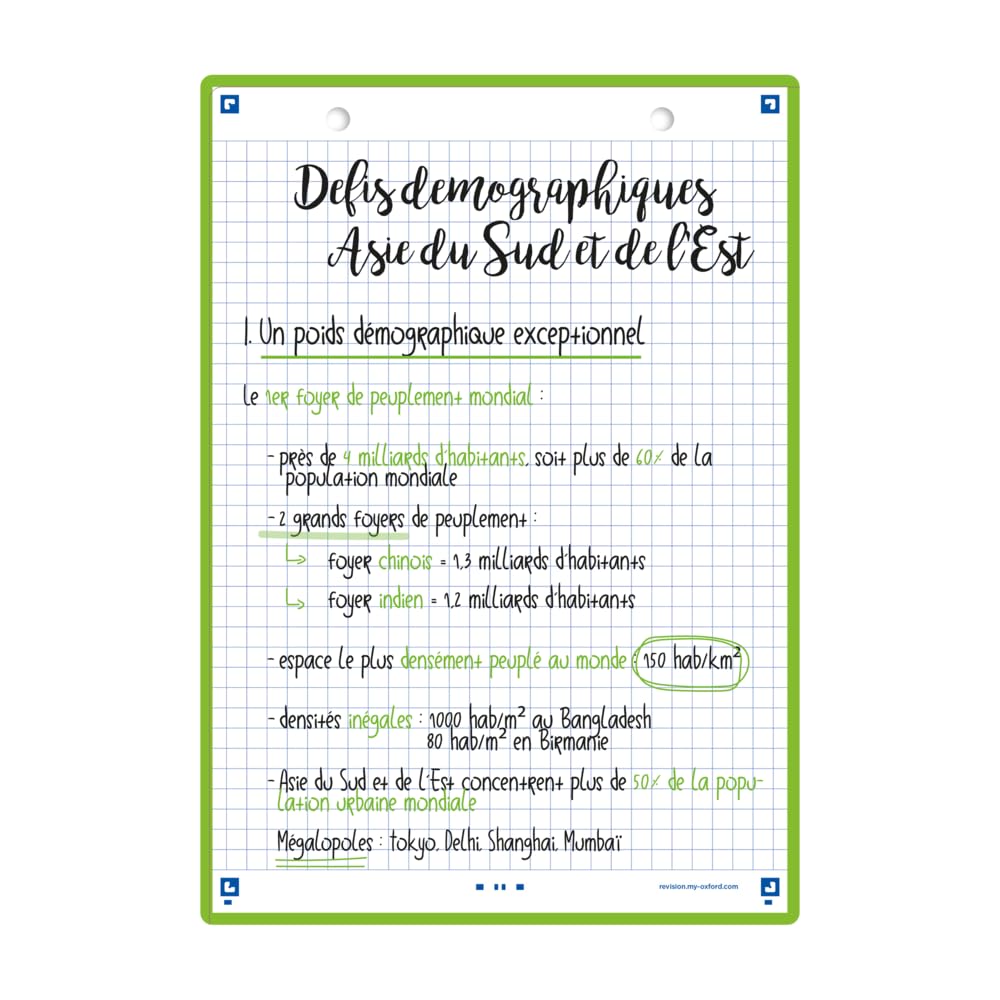 Defis demographiques
Asie du Sud et de l'Est
1. Un poids démographique exceptionnel
Le 1er foyer de peuplement mondial :
- près de 4 milliards d'habitants, soit plus de 60% de la
population mondiale
- 2 grands foyers de peuplement :
foyer chinois = 1,3 milliards d'habitants
foyer indien = 1,2 milliards d'habitants
- espace le plus densément peuplé au monde : 150 hab/km²
- densités inégales : 1000 hab/m² au Bangladesh
80 hab/m² en Birmanie
- Asie du Sud et de l'Est concentrent plus de 50% de la popu-
lation urbaine mondiale
Mégalopoles : tokyo, Delhi, Shanghai, Mumbaï
revision.my-oxford.com